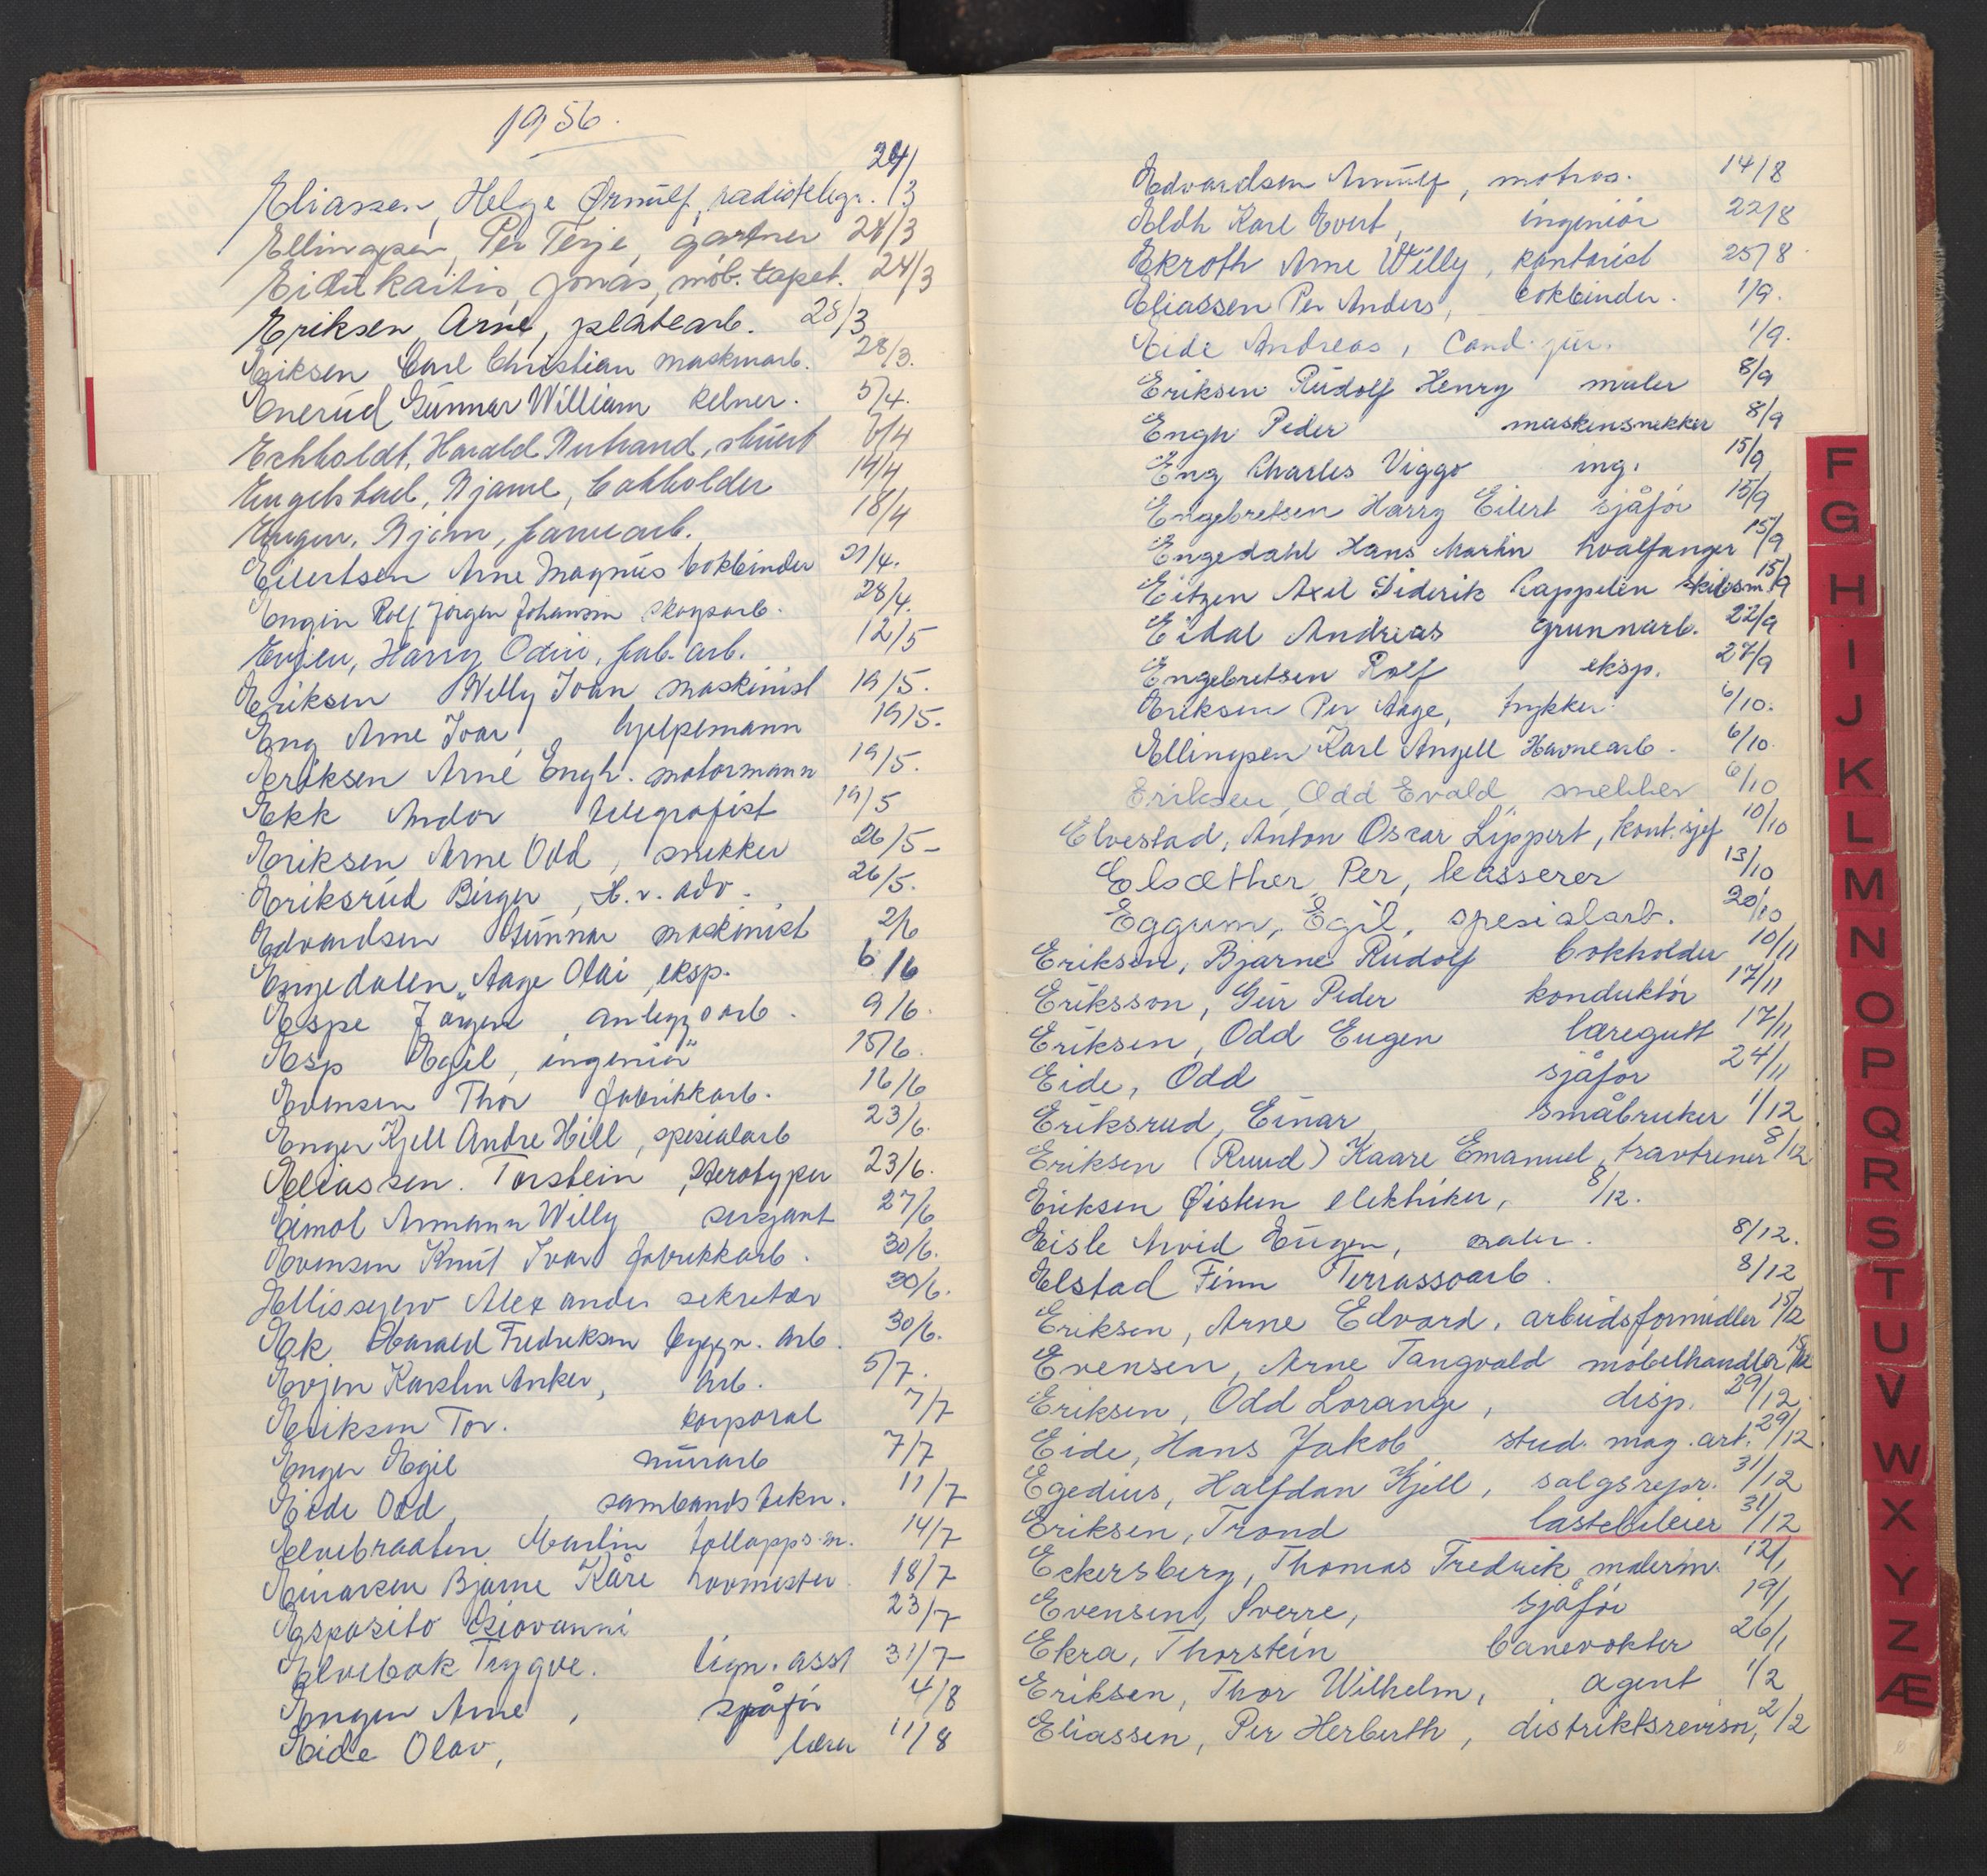 1956.
Eliassen, Helge Ørnulf, radiotelegr. 24/3
Ellingsen, Per Terje, gartner 24/3
Eidukaitis, Jonas, møb. tapet. 24/3
Eriksen, Arne, platearb. 28/3
Eriksen Carl Christian maskinarb. 28/3.
Enerud Gunnar William kelner. 5/4.
Echholdt, Harald Durhand, stuert 6/4
Engelstad, Bjarne, bokholder 14/4
Engen, Bjørn, farvearb. 18/4
Eilertsen Arne Magnus bokbinder 21/4.
Engen Rolf Jørgen Johansen skogsarb. 28/4.
Evjen, Harry Odin, fab. arb. 12/5
Eriksen Willy Ivan maskinist 19/5.
Eng Arne Ivar, hjelpemann 19/5.
Eriksen Arne Engh. motormann 19/5.
Ekk Andor telegrafist 19/5
Eriksen Arne Odd, snekker 26/5-
Eriksrud Birger, H.r.adv. 26/5.
Edvardsen Gunnar maskinist 2/6
Engedalen, Aage Olai, eksp. 6/6
Espe Jørgen, anleggsarb. 9/6.
Esp Egil, ingeniør 15/6.
Evensen Thor fabrikkarb. 16/6
Enger Kjell Andre Hill, spesialarb 23/6.
Eliassen. Torstein, sterotyper 23/6.
Eimot Armann Willy sersjant 27/6
Evensen Knut Ivar fabrikkarb. 30/6.
Ellisseyew Alexander sekretær 30/6.
Ek Harald Fredriksen bygn. arb. 30/6.
Evjen Karsten Anker, arb. 5/7.
Eriksen Tor. korporal 7/7
Enger Egil murarb 7/7
Eide Odd, sambandstekn. 11/7
Elvebraaten Martin tollopps.m. 14/7
Einarsen Bjarne Kåre hovmester 18/7
Esposito Giovanni 23/7
Elvebak Trygve. lign. asst 31/7
Engen Arne, sjåfør 4/8
Eide Olav, lærer 11/8
Edvardsen Arnulf, matros. 14/8
Eldh Karl Evert, ingeniør 22/8
Ekroth Arne Willy, kontorist 25/8
Eliassen Per Anders, bokbinder. 1/9.
Eide Andreas, Cand. jur. 1/9.
Eriksen Rudolf Henry maler 8/9
Engh Peder maskinsnekker 8/9
Eng Charles Viggo ing. 15/9
Engebretsen Harry Eilert sjåfør 15/9
Engedahl Hans Martin hvalfanger 15/9
Eitzen Axel Diderik Cappelen skibsm. 15/9
Eidal Andreas grunnarb. 22/9
Engebretsen Rolf eksp. 27/9
Eriksen Per Aage, trykker 6/10.
Ellingsen Karl Angell Havnearb. 6/10.
Eriksen, Odd Evald snekker 6/10
Elvestad, Anton Oscar Lippert, kont. sjef 10/10
Elsæther, Per, kasserer 13/10
Eggum, Egil, spesialarb. 20/10
Eriksen, Bjarne Rudolf bokholder 10/11
Eriksson, Geir Peder konduktør 17/11
Eriksen, Odd Eugen læregutt 17/11
Eide, Odd sjåfør 24/11
Eriksrud, Einar, småbruker 1/12
Eriksen (Ruud) Kaare Emanuel, travtrener 8/12
Eriksen Øistein elektriker, 8/12.
Eisle Arvid Eugen, maler. 8/12.
Elstad Finn Terrassoarb. 8/12
Eriksen, Arne Edvard, arbeidsformidler 15/12
Evensen, Arne Tangvald møbelhandler 18/12
Eriksen, Odd Lorange, disp. 29/12.
Eide, Hans Jakob stud. mag. art. 29/12.
Egedius, Halfdan Kjell, salgsrepr. 31/12
Eriksen, Trond lastebileier 31/12
Eckersberg, Thomas Fredrik malerm. 12/1
Evensen, Sverre, sjåfør 19/1
Ekra, Thorstein banevokter 26/1
Eriksen, Thor Wilhelm, agent 1/2
Eliassen, Per Herberth, distriktsrevisor, 2/2
F
G
H
I
J
K
L
M
N
O
P
Q
R
S
T
U
V
W
X
Y
Z
Æ